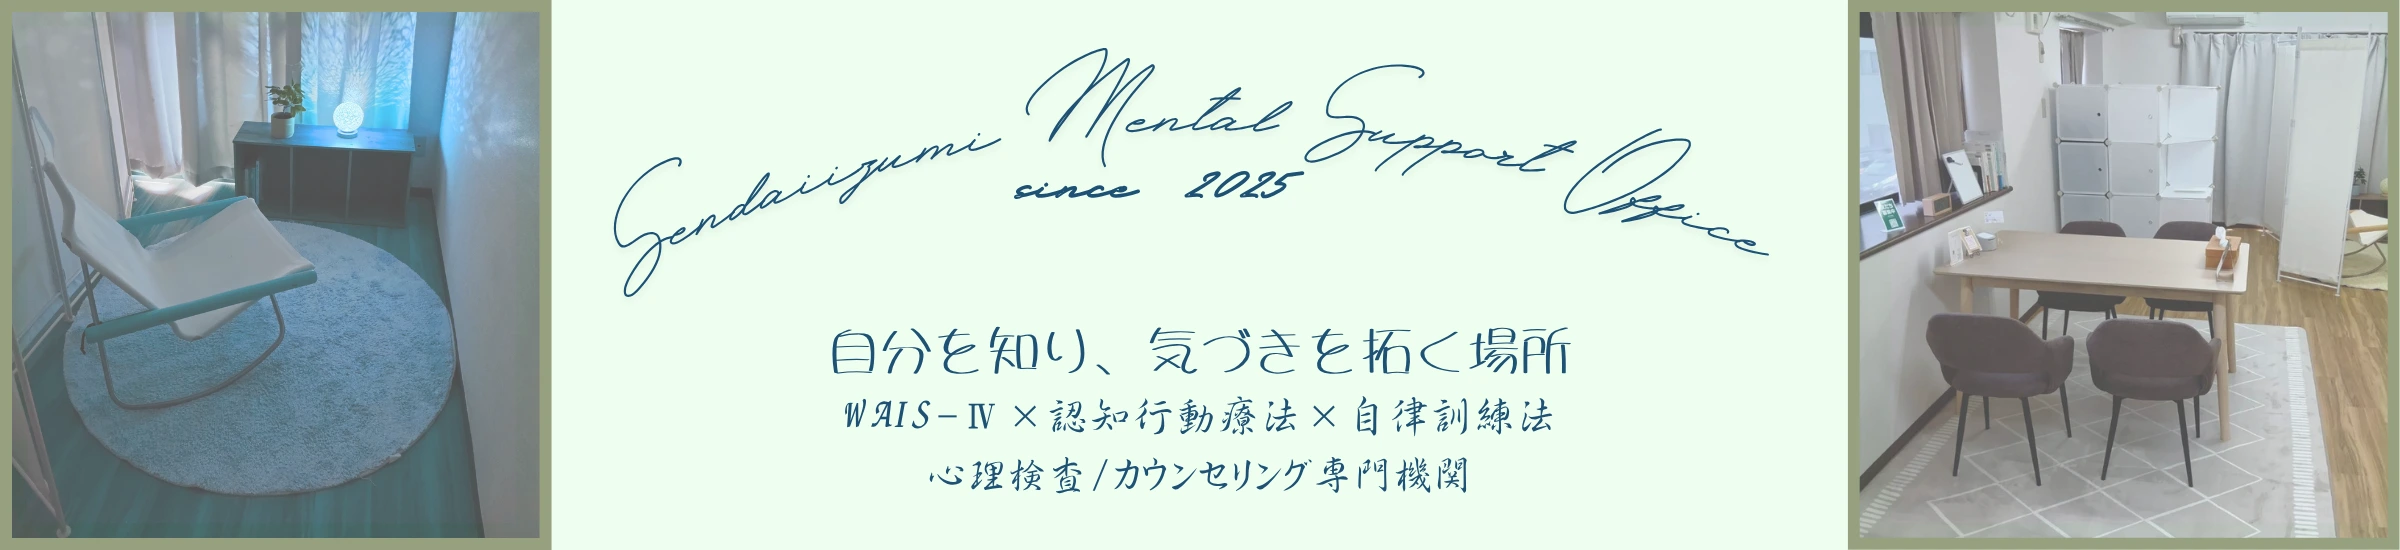 Sendaiizumi Mental Support Office
since 2025
自分を知り、気づきを拓く場所
WAIS-Ⅳ×認知行動療法×自律訓練法
心理検査/カウンセリング専門機関